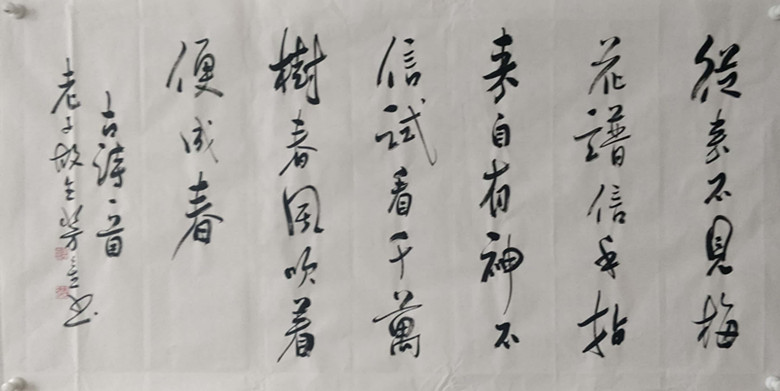 從来不見梅
花譜信手拈
来自有神不
信試看千萬
樹春風吹着
便成春
古詩一首
老子故